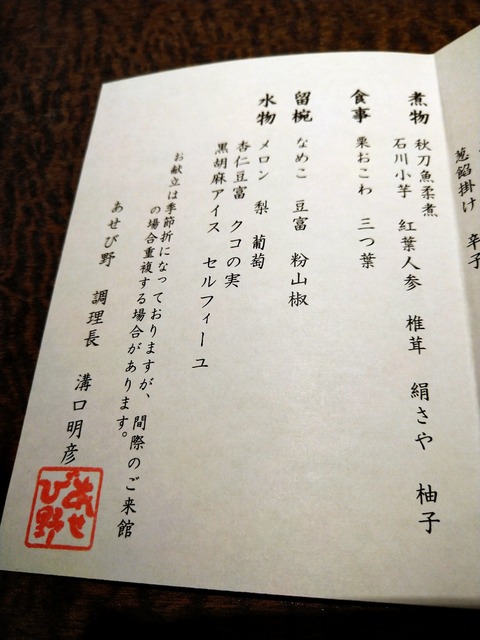 葱餡掛け 辛子
煮物 秋刀魚柔煮
石川小芋 紅葉人参 椎茸 絹さや 柚子
食事 栗おこわ 三つ葉
留椀 なめこ 豆富 粉山椒
水物 メロン 梨 葡萄
杏仁豆富 クコの実
黒胡麻アイス セルフィーユ
お献立は季節折になっておりますが、間際のご来館
の場合重複する場合があります。
あせび野 調理長 溝口明彦
あせび野